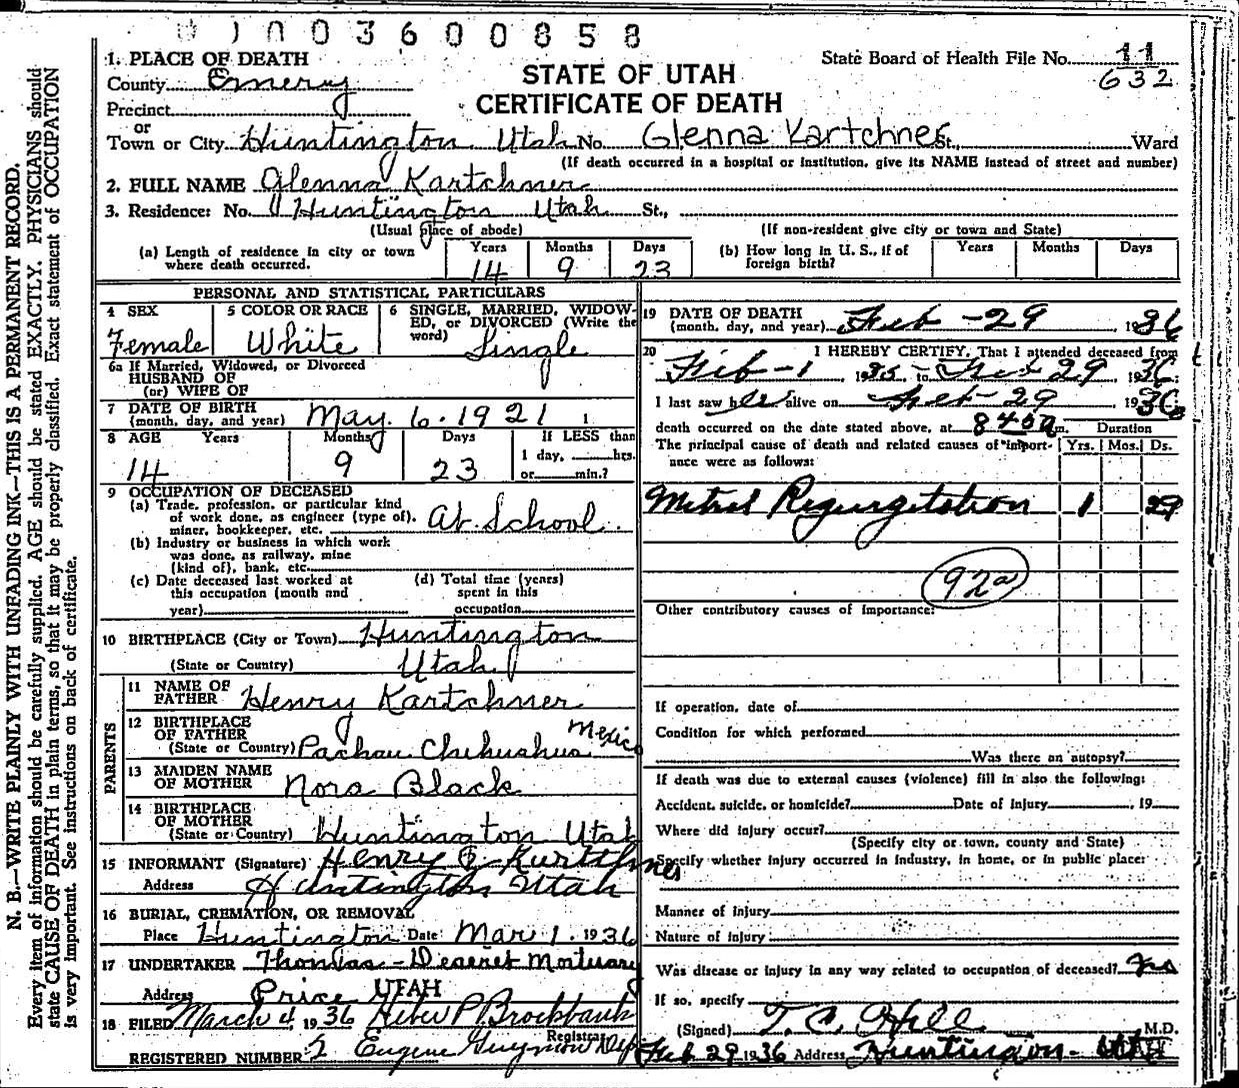 0 1 0 0 3 6 0 0 8 5 8
1. PLACE OF DEATH
State Board of Health File No. 11
County Emery
STATE OF UTAH
632
Precinct
CERTIFICATE OF DEATH
or
Town or City Huntington Utah No. Glenna Kartchner St., Ward
(If death occurred in a hospital or institution, give its NAME instead of street and number)
2. FULL NAME Glenna Kartchner
3. Residence: No. Huntington Utah St.,
(Usual place of abode) (If non-resident give city or town and State)
(a) Length of residence in city or town where death occurred. Years 14 Months 9 Days 23
(b) How long in U. S., if of foreign birth? Years Months Days
PERSONAL AND STATISTICAL PARTICULARS
4 SEX Female
5 COLOR OR RACE White
6 SINGLE, MARRIED, WIDOWED, or DIVORCED (Write the word) Single
6a If Married, Widowed, or Divorced
HUSBAND OF
(or) WIFE OF
7 DATE OF BIRTH
(month, day, and year) May. 6. 1921
8 AGE Years 14 Months 9 Days 23
If LESS than
1 day, hrs.
or min.?
9 OCCUPATION OF DECEASED
(a) Trade, profession, or particular kind
of work done, as engineer (type of). At School
miner, bookkeeper, etc.
(b) Industry or business in which work
was done, as railway, mine
(kind of), bank, etc.
(c) Date deceased last worked at
this occupation (month and
year)
(d) Total time (years)
spent in this
occupation
10 BIRTHPLACE (City or Town) Huntington
(State or Country) Utah
PARENTS
11 NAME OF
FATHER Henry Kartchner
12 BIRTHPLACE
OF FATHER Mexico
(State or Country) Chihuahua
13 MAIDEN NAME
OF MOTHER Nora Black
14 BIRTHPLACE
OF MOTHER
(State or Country) Huntington Utah
15 INFORMANT (Signature) Henry
Address Huntington Utah
16 BURIAL, CREMATION, OR REMOVAL
Place Huntington Date Mar 1. 1936
17 UNDERTAKER Thomas - Deseret Mortuary
Address Price UTAH
18 FILED March 4, 1936 Heber P. Brockbank
Registrar
REGISTERED NUMBER 2 Eugene Guymon Dep
19 DATE OF DEATH
(month, day, and year) Feb - 29, 1936
20 I HEREBY CERTIFY, That I attended deceased from
Feb - 1 1935 to Feb 29, 1936
I last saw her alive on Feb - 29 1936
death occurred on the date stated above, at 8 40 a m. Duration
The principal cause of death and related causes of importance were as follows: Yrs. Mos. Ds.
Mitral Regurgetation 1 29
92a
Other contributory causes of importance:
If operation, date of
Condition for which performed
Was there an autopsy?
If death was due to external causes (violence) fill in also the following:
Accident, suicide, or homicide? Date of Injury , 19
Where did injury occur?
(Specify city or town, county and State)
Specify whether injury occurred in industry, in home, or in public place:
Manner of Injury
Nature of Injury
Was disease or injury in any way related to occupation of deceased?
If so, specify
(Signed) T. C. Hill M.D.
Feb 29 1936 Address Huntington - Utah
N. B.—WRITE PLAINLY WITH UNFADING INK—THIS IS A PERMANENT RECORD.
Every item of information should be carefully supplied. AGE should be stated EXACTLY. PHYSICIANS should
state CAUSE OF DEATH in plain terms, so that it may be properly classified. Exact statement of OCCUPATION
is very important. See instructions on back of certificate.